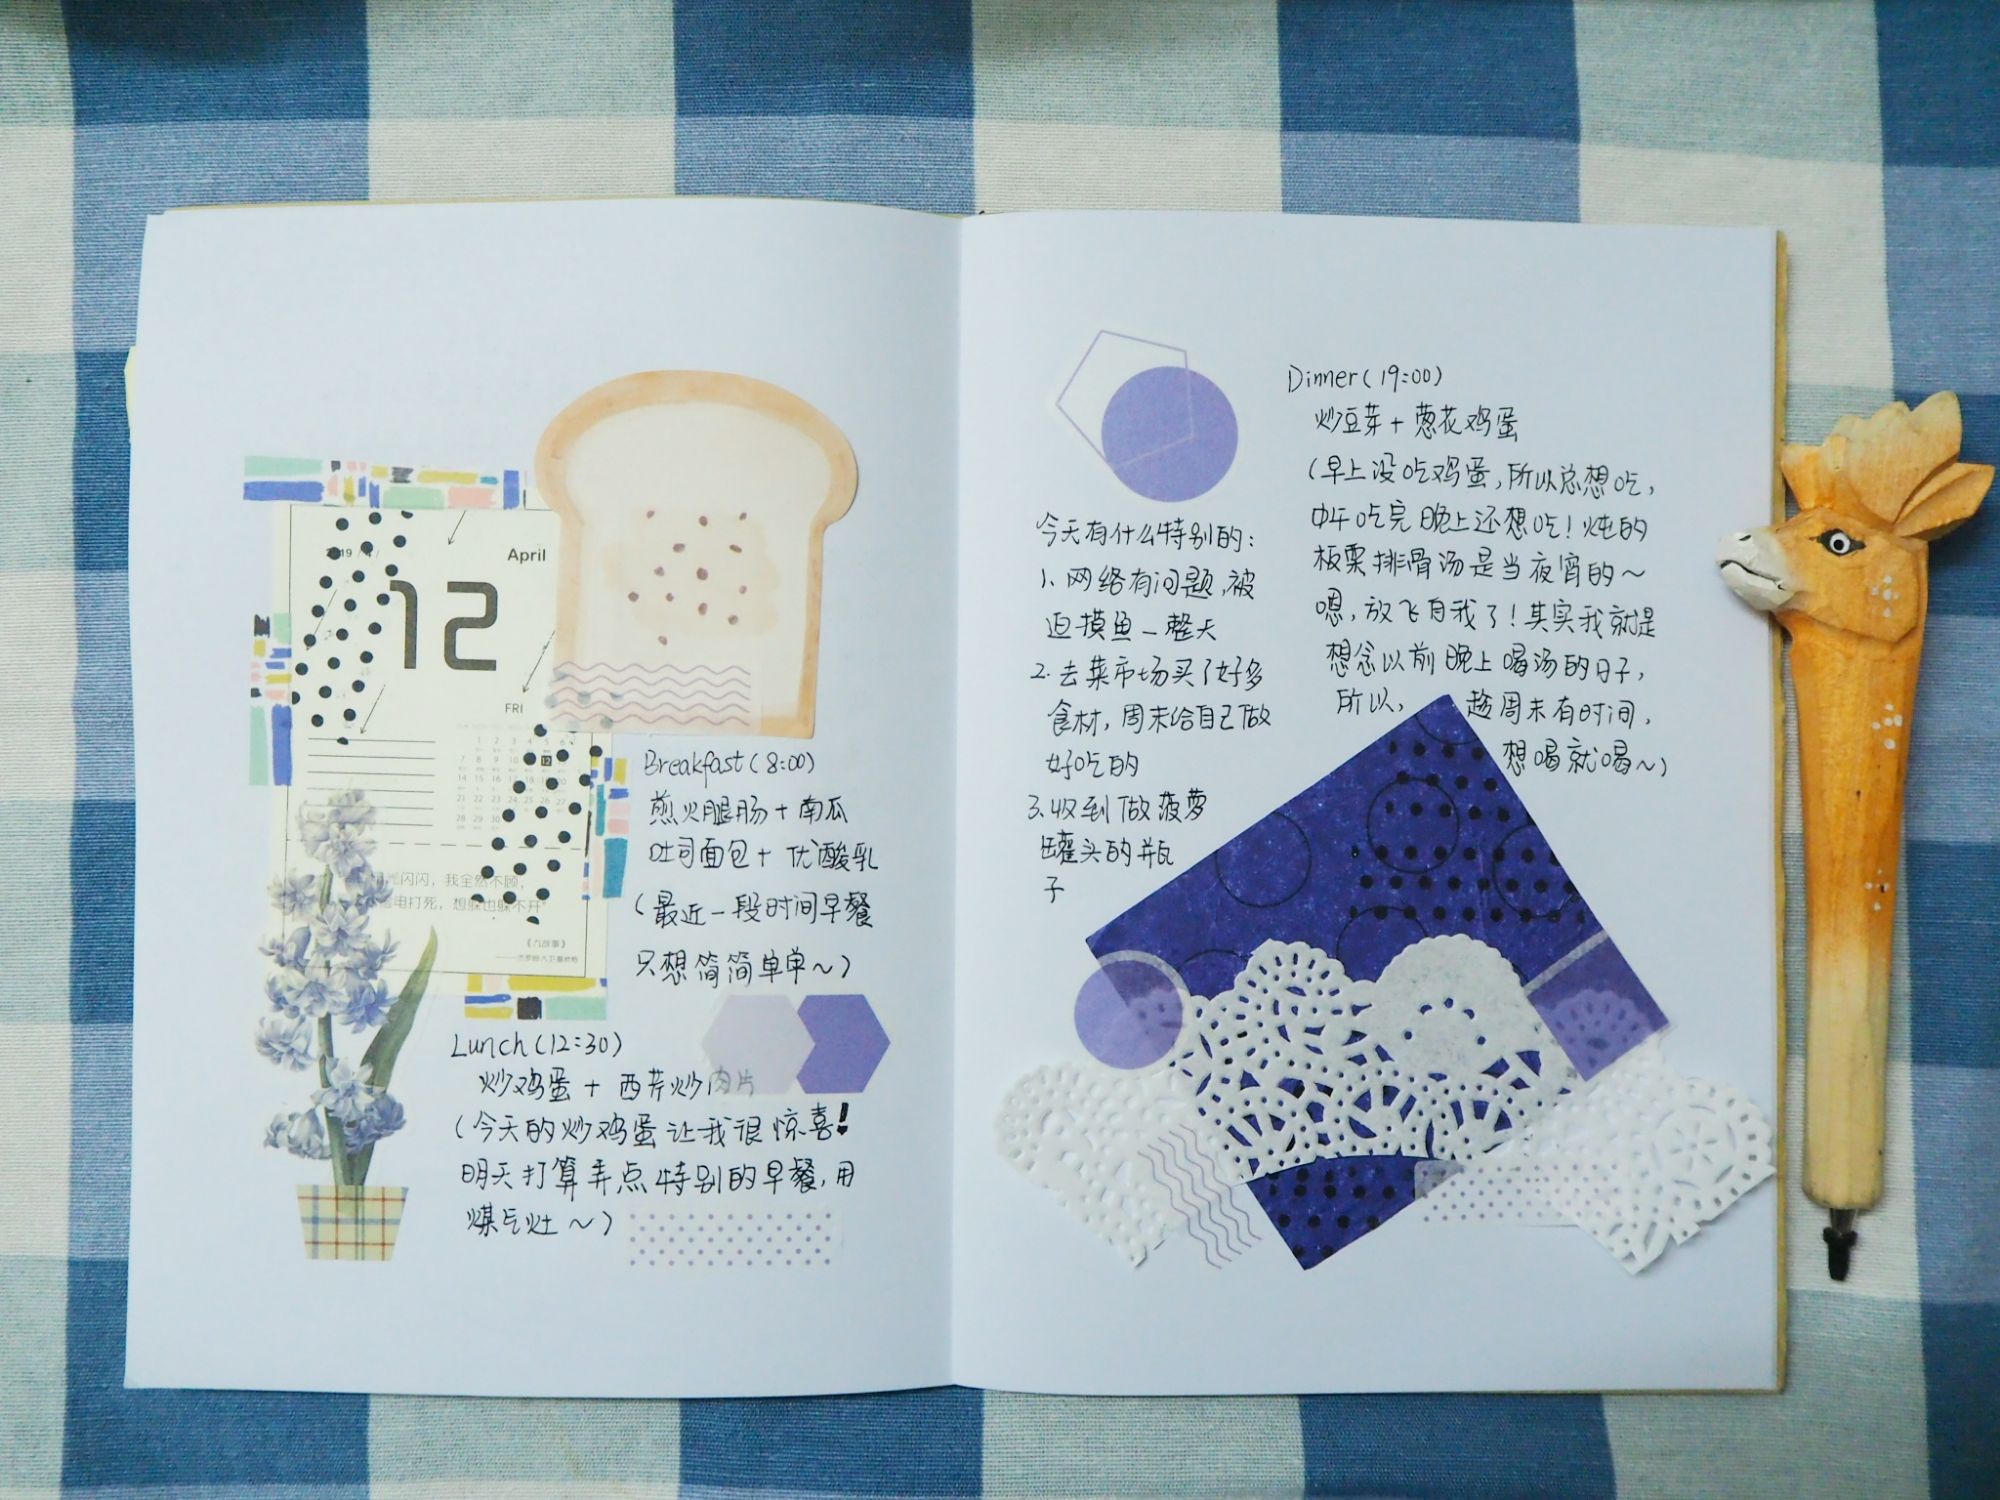 April
12
FRI
1 2 3 4 5 6
7 8 9 10 12
14 15 16 17 18 19 20
21 22 23 24 25 26 27
28 29 30
闪闪，我全然不顾，
电打死，想躲也躲不开"
《九故事》
Breakfast(8:00)
煎火腿肠+南瓜
吐司面包+优酸乳
(最近一段时间早餐
只想简简单单~)
Lunch(12:30)
炒鸡蛋+西芹炒肉片
(今天的炒鸡蛋让我很惊喜!
明天打算弄点特别的早餐,用
煤气灶~)
今天有什么特别的:
1、网络有问题,被
迫摸鱼一整天
2.去菜市场买了好多
食材,周末给自己做
好吃的
3、收到做菠萝
罐头的瓶
子
Dinner(19:00)
炒豆芽+葱花鸡蛋
(早上没吃鸡蛋,所以总想吃,
中午吃完晚上还想吃!炖的
板栗排骨汤是当夜宵的~
嗯,放飞自我了!其实我就是
想念以前晚上喝汤的日子,
所以, 趁周末有时间,
想喝就喝~)